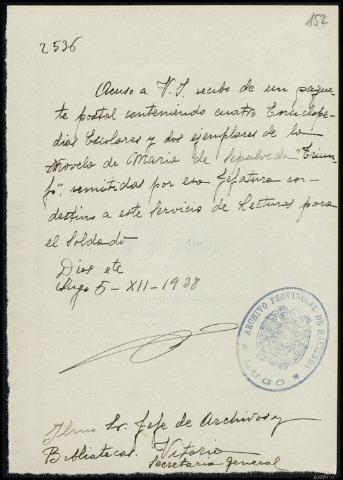 152
2536
Acuso a V.I. recibo de un paque-
te postal conteniendo cuatro Enciclope-
dias Escolares y dos ejemplares de la
Novela de Maria de Sepulveda "Triun-
fo", remitidas por esa Jefatura con
destino a este Servicio de Lecturas para
el Soldado
Dios etc
Lugo 5-XII-1938
ARCHIVO PROVINCIAL DE HACIENDA
* LUGO *
Ilmo Sr. Jefe de Archivos y
Bibliotecas. Vitoria
Secretaria General